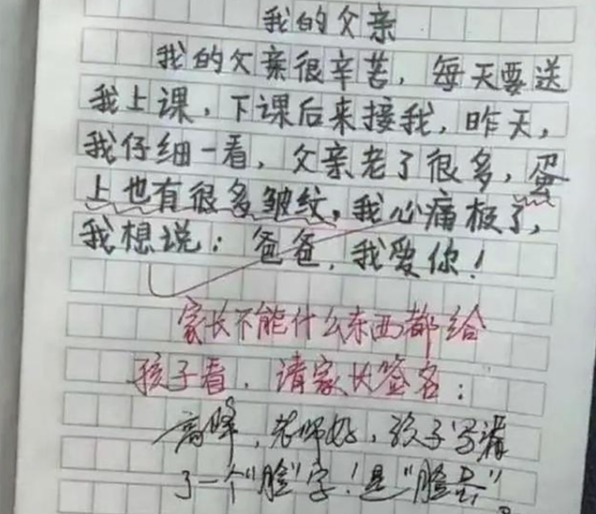 我的父亲
我的父亲很辛苦，每天要送
我上课，下课后来接我，昨天，
我仔细一看，父亲老了很多，蛋
上也有很多皱纹，我心痛极了，
我想说：爸爸，我爱你！
家长不能什么东西都给
孩子看，请家长签名：
高峰，老师好，孩子写错
了一个“脸”字！是“脸蛋”